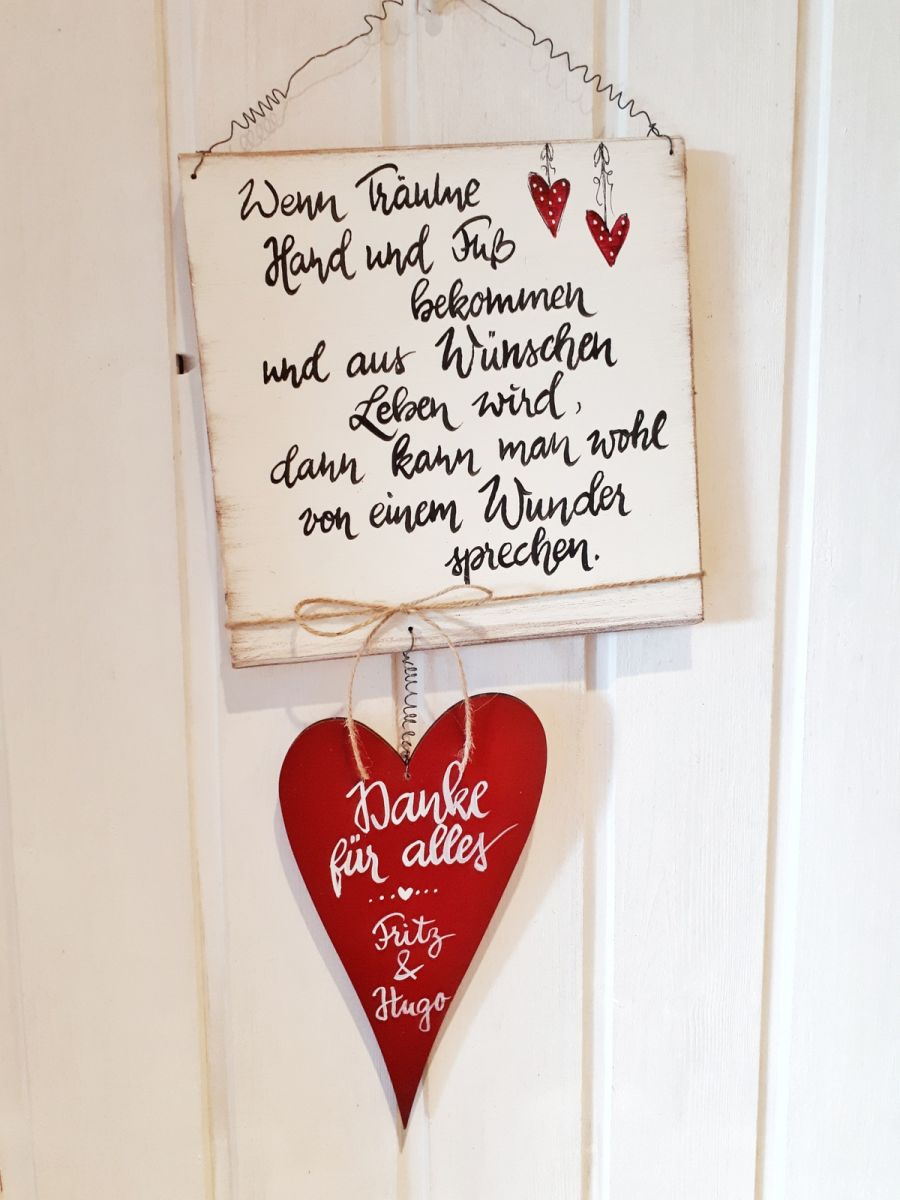 Wenn Träume
Hand und Fuß
bekommen
und aus Wünschen
Leben wird,
dann kann man wohl
von einem Wunder
sprechen.
Danke
für alles
Fritz
&
Hugo